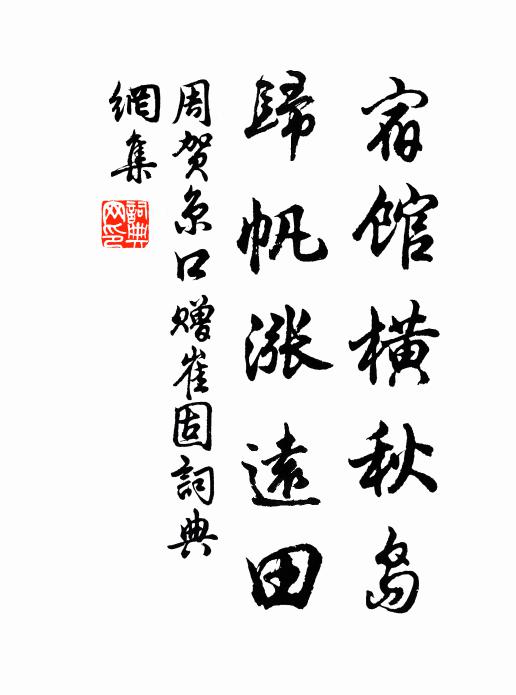 宿館橫秋島
歸帆漲遠田
周贺京口赠崔固詞典
網集
詞典
网印